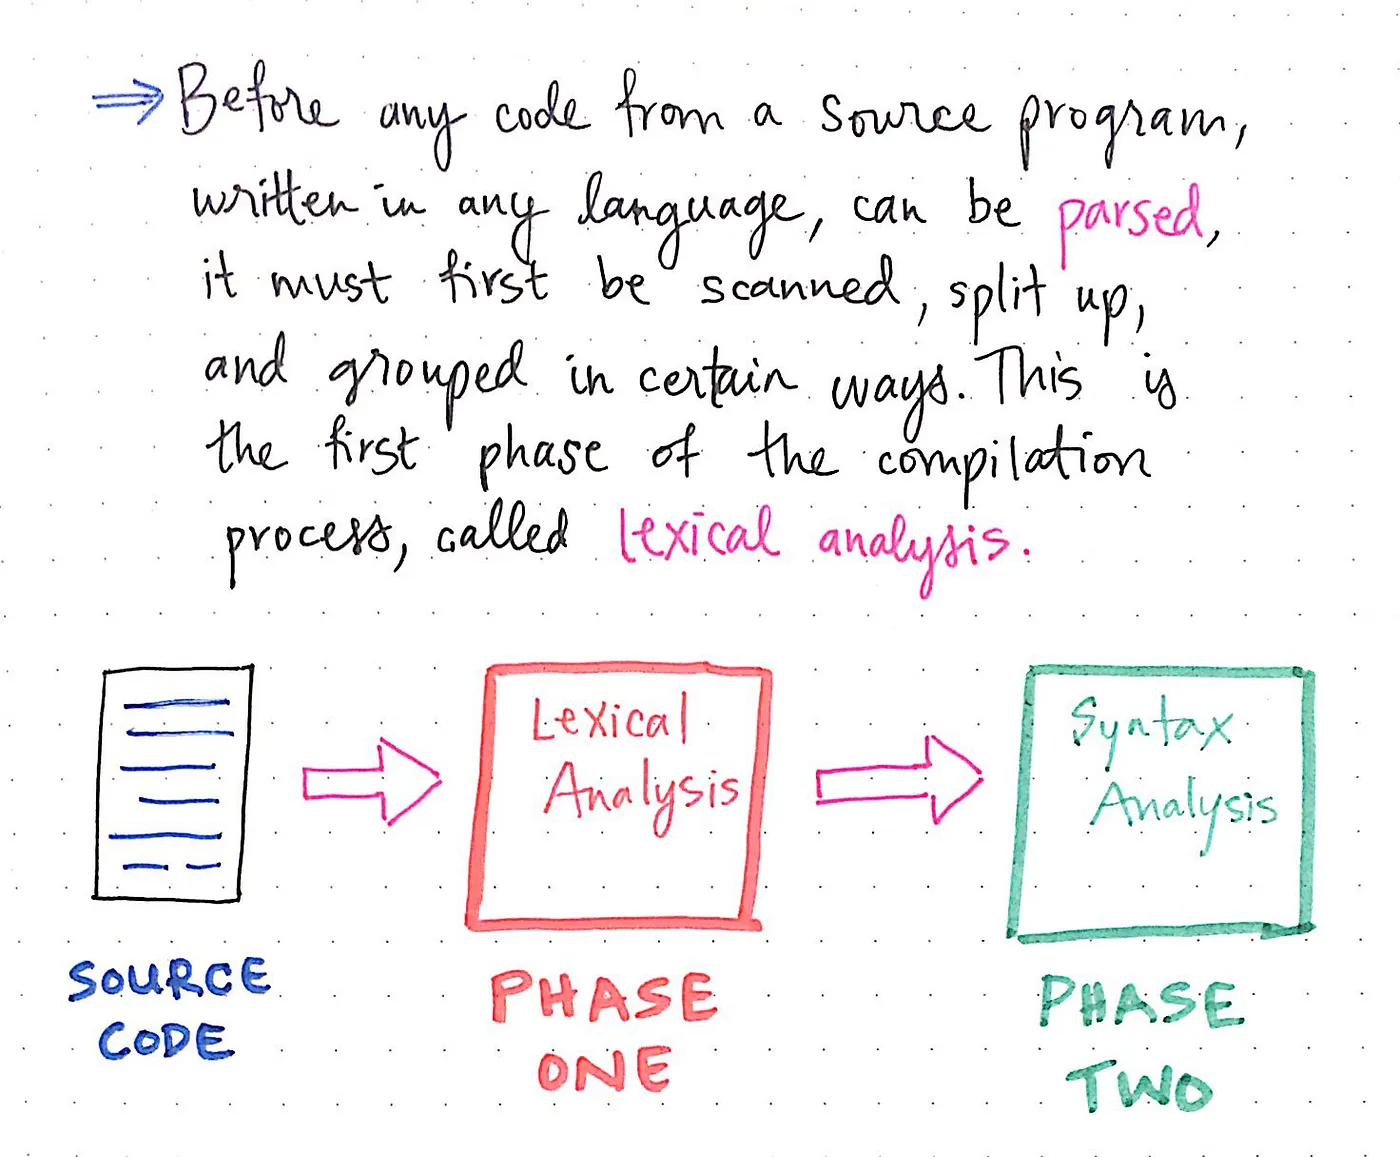 ⇒ Before any code from a source program,
written in any language, can be parsed,
it must first be scanned, split up,
and grouped in certain ways. This is
the first phase of the compilation
process, called lexical analysis.
Lexical
Analysis
Syntax
Analysis
SOURCE
CODE
PHASE
ONE
PHASE
TWO